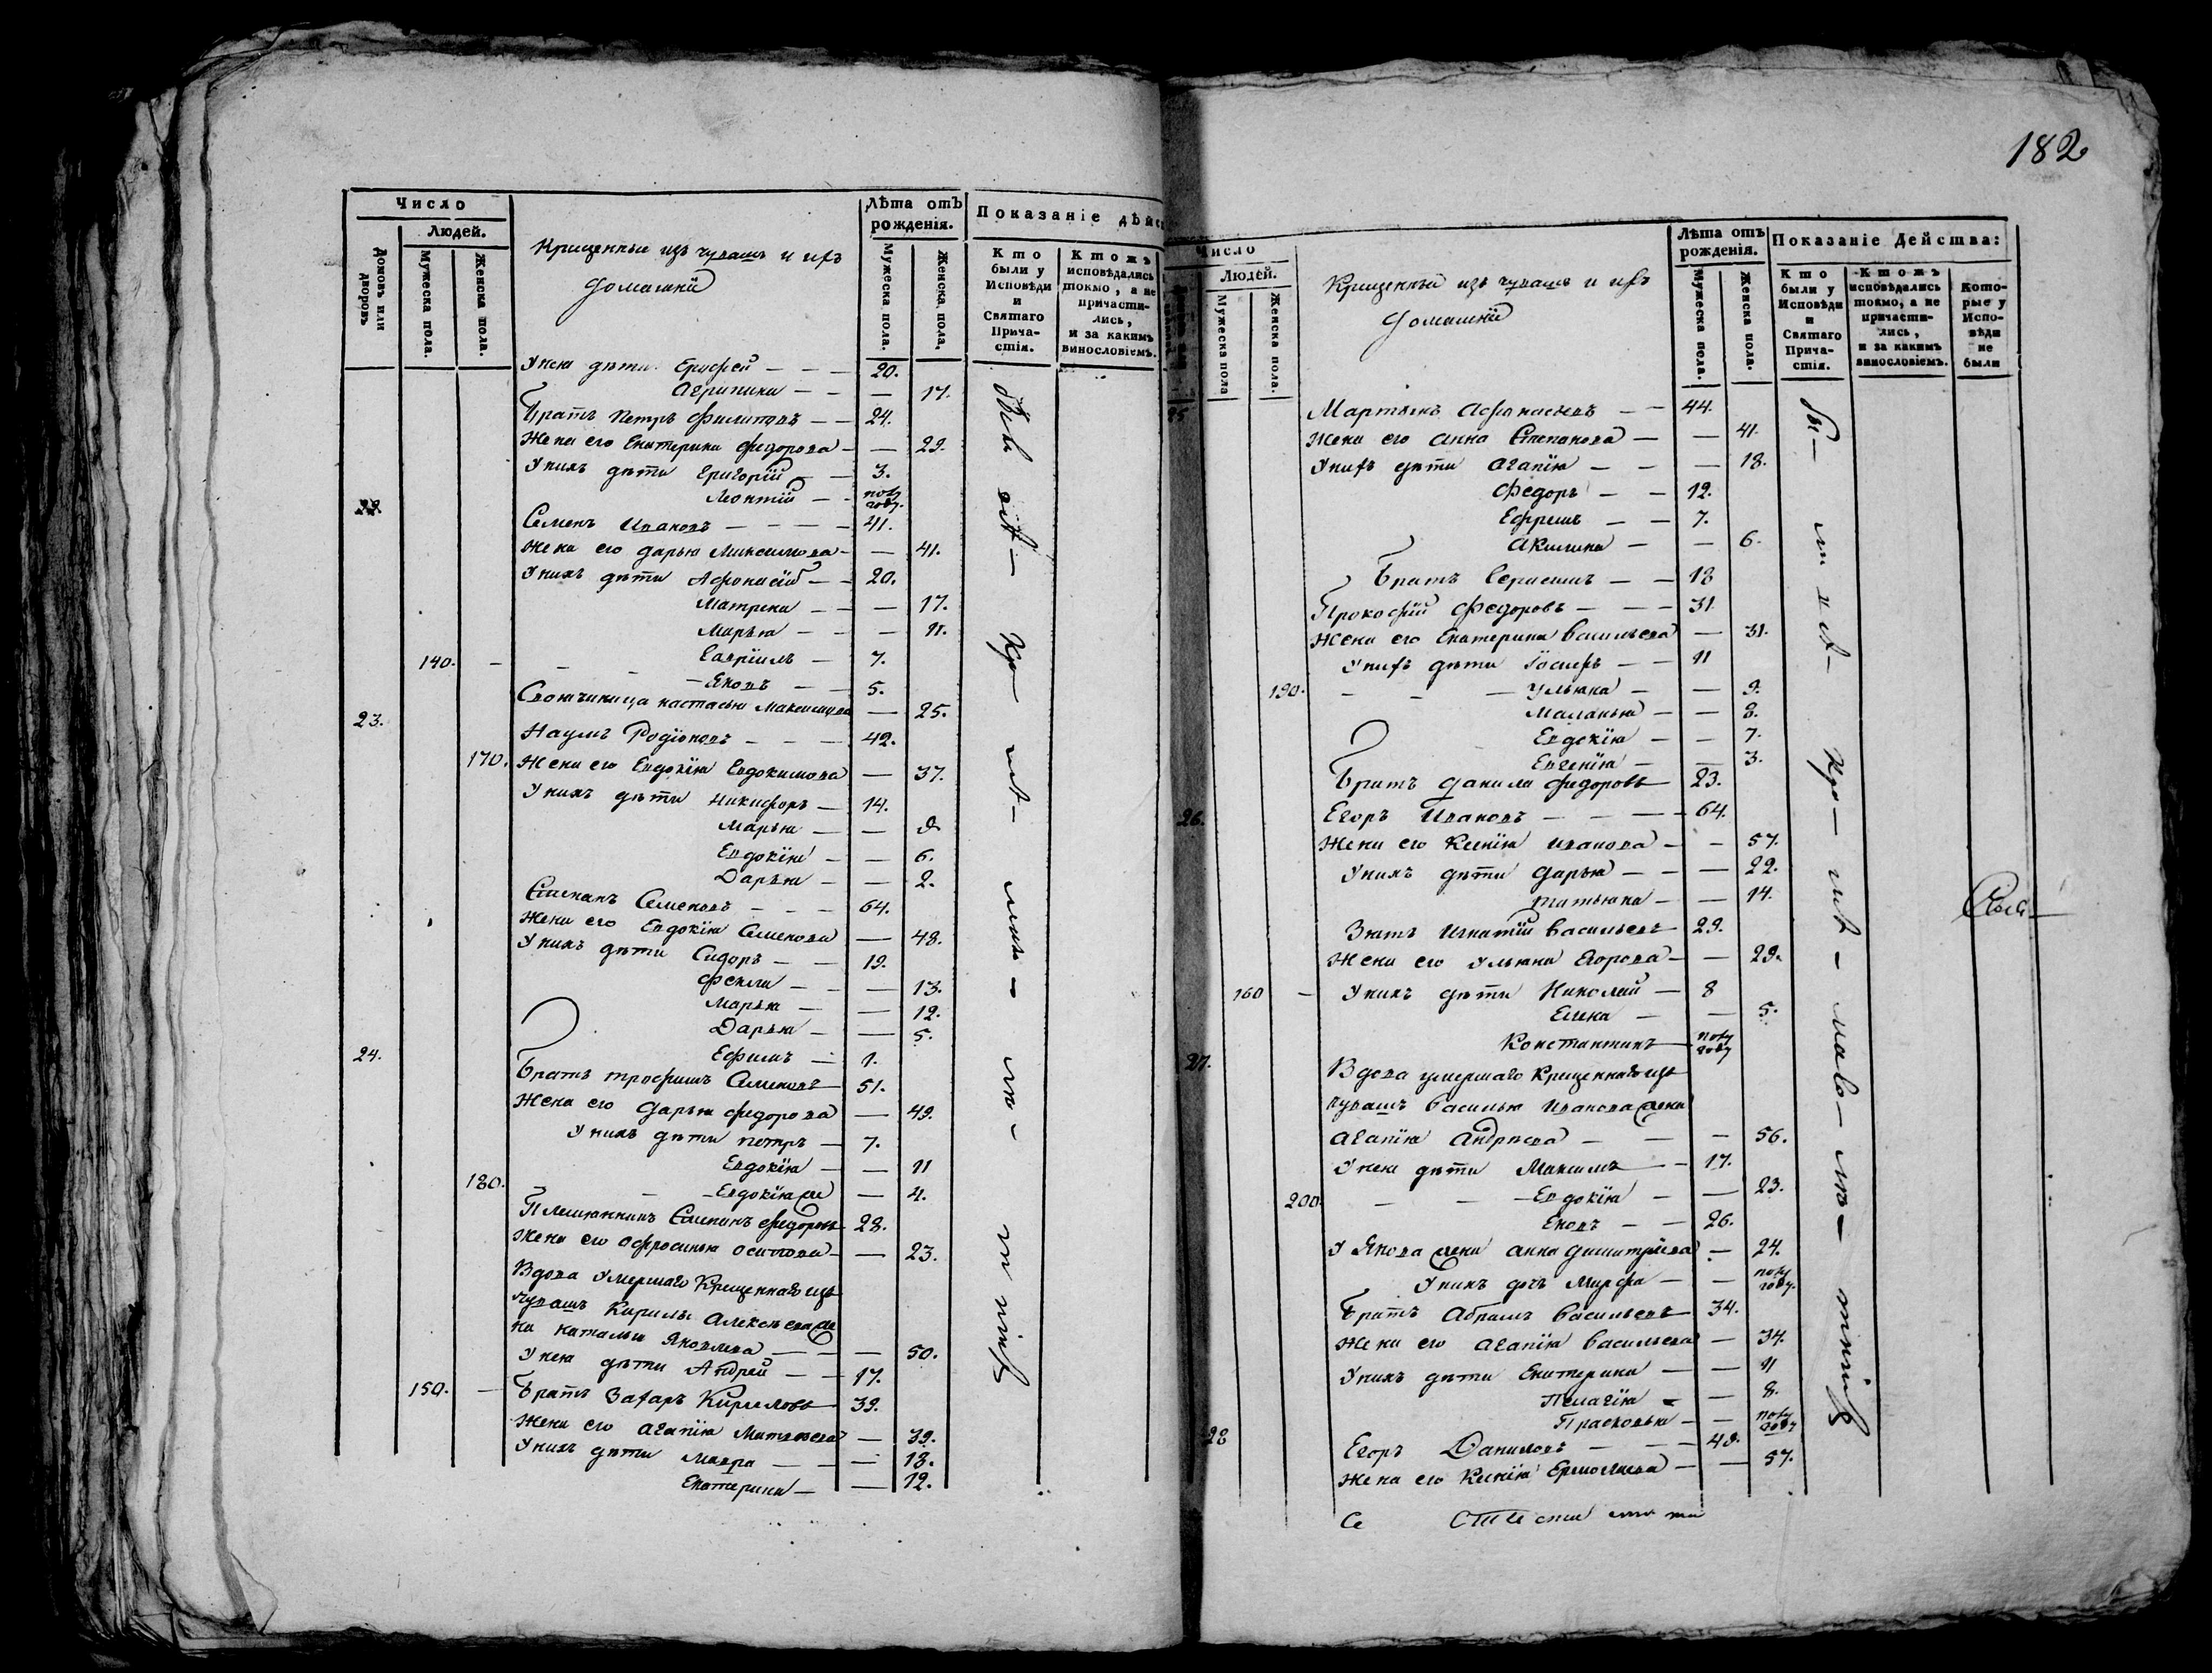 Число
Людей.
Домовъ или дворовъ
Мужеска пола.
Женска пола.
Крещенные изъ чувашъ и ихъ
домашніи
Лѣта отъ рожденія.
Мужеска пола.
Женска пола.
Показаніе дѣйс
Кто были у Исповѣди и Святаго Прича-стія.
Ктожъ исповѣдались токмо, а не причасти-лись, и за какимъ винословіемъ.
У нею дѣти Ерофей — — — 20.
Агрипина — — — 17.
Братъ Петръ Филиповъ — — 24.
Жена его Екатерина Федорова — — 29.
У нихъ дѣти Григорій — — 3.
Леонтій — — полу году.
22. Семенъ Ивановъ — — — — 41.
Жена его Дарья Максимова — — 41.
У нихъ дѣти Афонасій — — 20.
Матрена — — — 17.
Марья — — — 11.
140. — — Гаврiилъ — 7.
— — Яковъ — — 5.
Своячиница Настасья Максимова — 25.
23. Наумъ Родіоновъ — — — 42.
170. Жена его Евдокія Евдокимова — 37.
У нихъ дѣти Никифоръ — 14.
Марья — —
Евдокія — — 6.
Дарья — — 2.
Степанъ Семеновъ — — — 64.
Жена его Евдокія Семенова — 48.
У нихъ дѣти Сидоръ — — 19.
Фекла — — — 13.
Марья — — 12.
Дарья — — 5.
Ефимъ — 1.
24. Братъ Трофимъ Семеновъ — 51.
Жена его Дарья Федорова — 49.
У нихъ дѣти Петръ — 7.
Евдокія — — 11
180. — — Евдокія же — 4.
Племянникъ Степанъ Федоровъ 28.
Жена его Офросинья Осипова — — 23.
Вдова умершаго крещеннаго изъ
чувашъ Кирилы Алексѣева же
на Наталья Яковлева — — — 50.
У нею дѣти Андрей — — 17.
150. — Братъ Захаръ Кириловъ 39.
Жена его Агапія Матвѣева — 39.
У нихъ дѣти Мавра — — — 18.
Екатерина — — 12.
182
Число
Людей.
Мужеска пола
Женска пола.
Крещенныи изъ чувашъ и ихъ
домашніи
Лѣта отъ рожденія.
Мужеска пола.
Женска пола.
Показаніе Дѣйства:
Кто были у Исповѣди и Святаго Прича-стія.
Ктожъ исповѣдались токмо, а не причасти-лись, и за какимъ винословіемъ.
Кото-рые у Испо-вѣди не были
25 Мартынъ Афонасьевъ — — 44.
Жена его Анна Степанова — — 41.
У нихъ дѣти Агапія — — — 18.
Федоръ — — 12.
Ефремъ — — 7.
Акилина — — 6.
Братъ Герасимъ — — 18
Прокофій Федоровъ — — — 31.
Жена его Екатерина Васильева — 31.
У нихъ дѣти Іосифъ — — 11
190. — — — Ульяна — — 9.
Маланья — — 8.
Евдокія — — 7.
Евгенія — — 3.
Братъ Данила Федоровъ 23.
26. Егоръ Ивановъ — — — — 64.
Жена его Ксенія Иванова — — 57.
У нихъ дѣти Дарья — — — 22.
Татьяна — — 14.
Зять Игнатій Васильевъ 29.
Жена его Ульяна Егорова — — 29.
160 — У нихъ дѣти Николай — 8
Елена — — 5.
Константинъ — полу году
27. Вдова умершаго крещеннаго изъ
чувашъ Василья Иванова жена
Агапія Андрѣева — — — 56.
У нею дѣти Максимъ — — 17.
200. — — — Евдокія — — 23.
Яковъ — — 26.
У Якова жена Анна Димитріева — 24.
У нихъ дочь Марфа — — полу году.
Братъ Абрамъ Васильевъ — 34.
Жена его Агапія Васильева — 34.
У нихъ дѣти Екатерина — — 11
Пелагія — — 8.
Прасковья — — полу году
28 Егоръ Даниловъ — — — 48.
Жена его Ксенія Ермолаева — — 57.